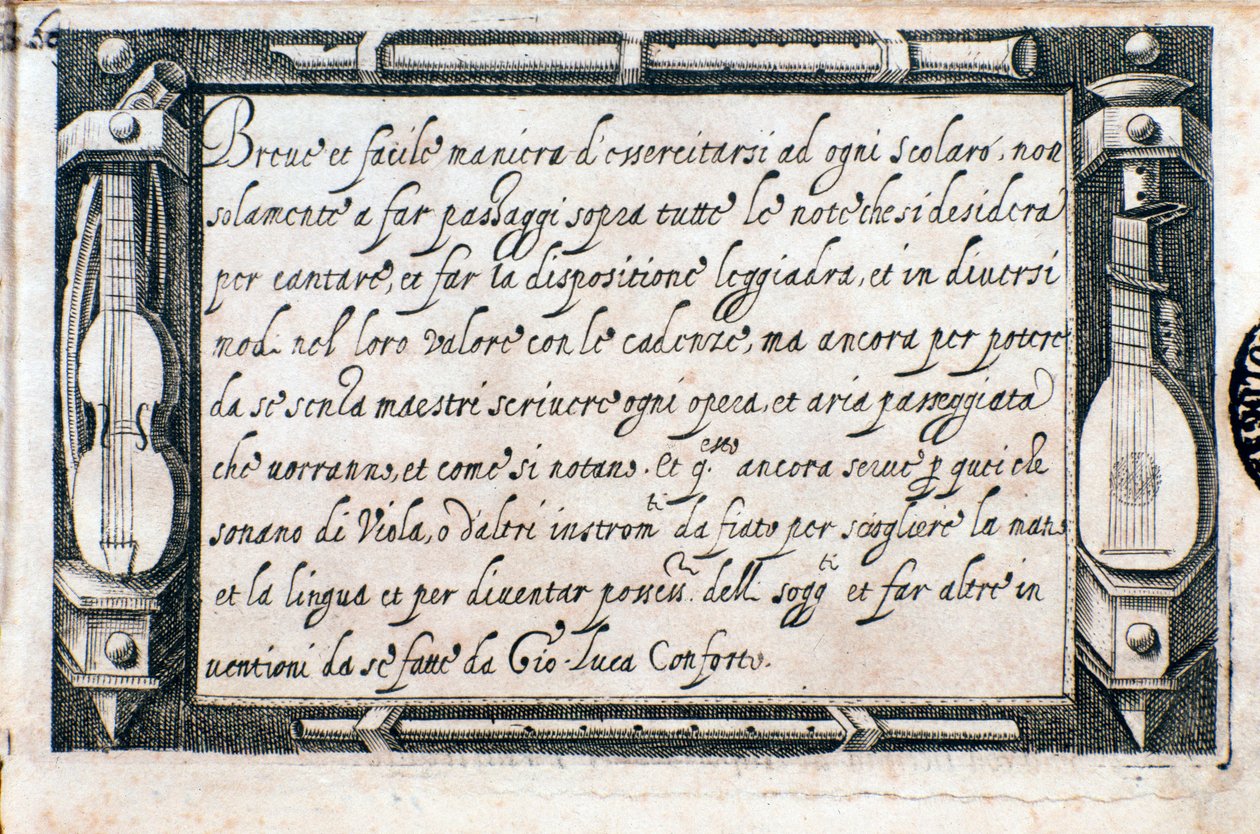 Breve et facile maniera d'essercitarsi ad ogni scolaro, non
solamente a far passaggi sopra tutte le note che si desidera
per cantare, et far la dispositione leggiadra, et in diversi
modi nel loro valore con le cadenze, ma ancora per potere
da se senza maestri scrivere ogni opera, et aria passeggiata
che vorranno, et come si notano. Et q.esto ancora serve p quei che
sonano di Viola, o d'altri instromti da fiato per sciogliere la mano
et la lingua et per diventar possess.ri delli soggti et far altre in
ventioni da se fatte da Gio. Luca Conforto.